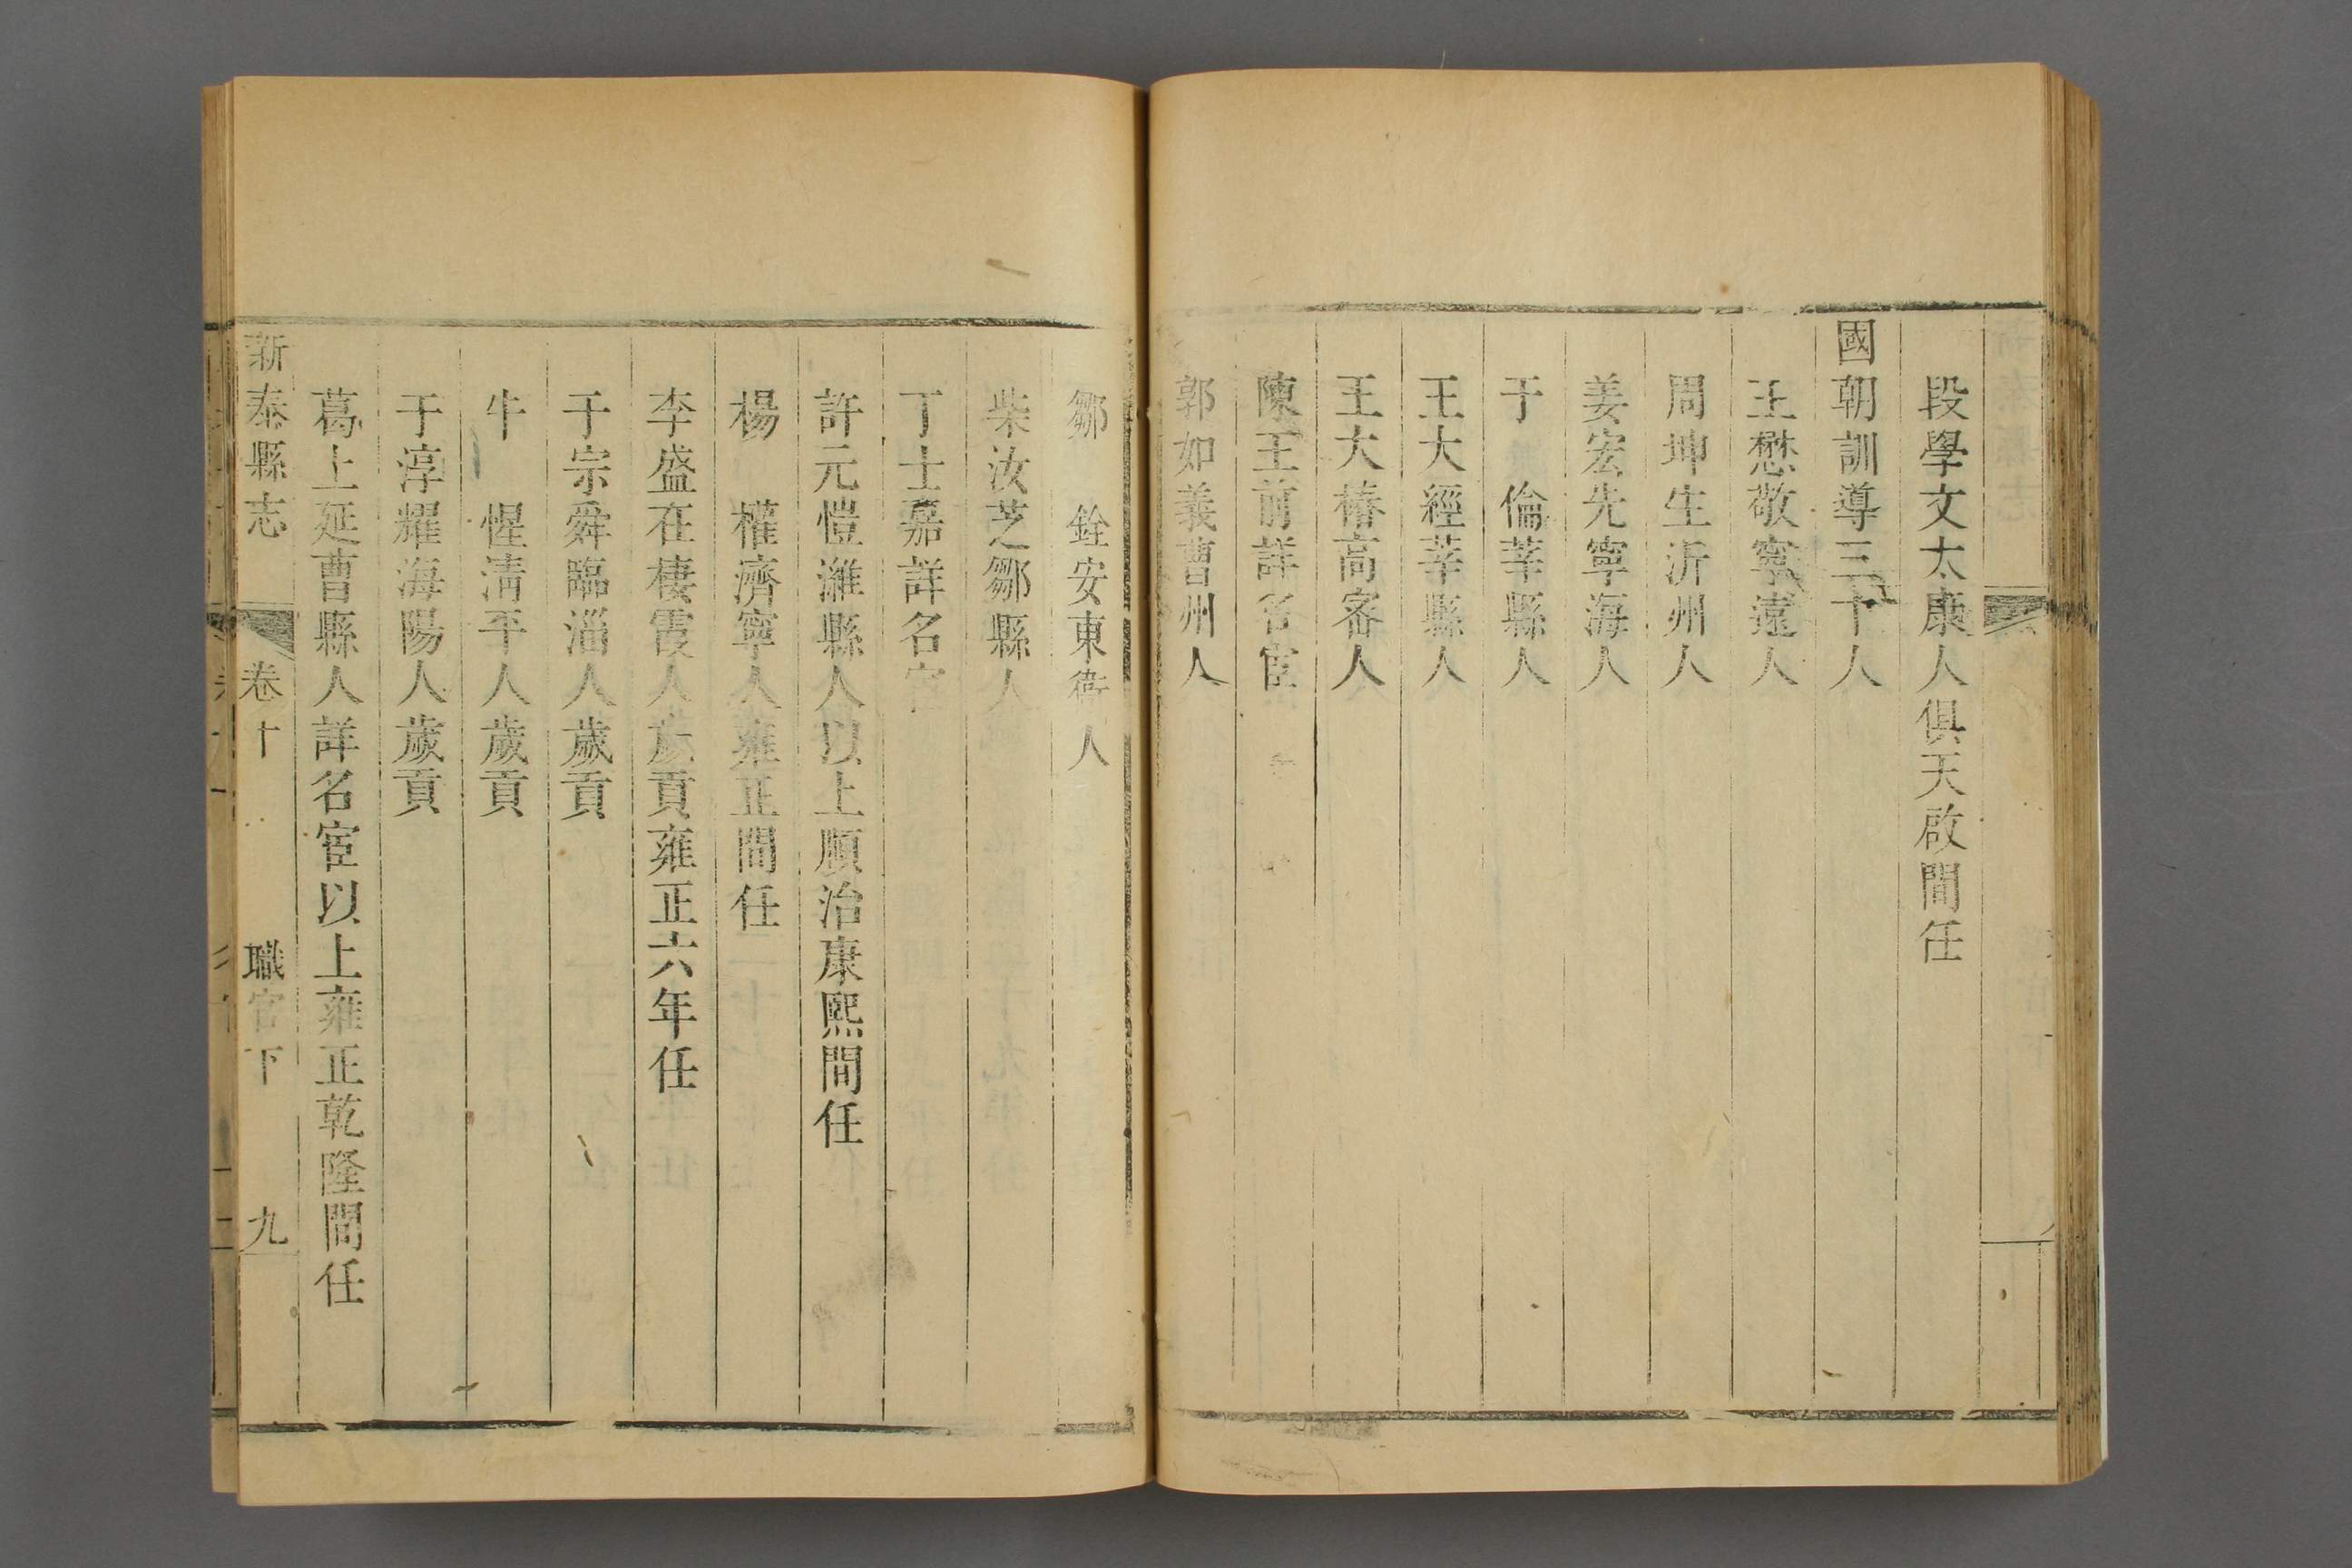 段學文太康人俱天啟間任
國朝訓導三十人
王懋敬寧遠人
周坤生沂州人
姜宏先寧海人
于倫莘縣人
王大經莘縣人
王大椿高密人
陳王前詳名宦
郭如義曹州人
鄒銓安東衛人
柴汝芝鄒縣人
丁士嘉詳名宦
許元愷濰縣人以上順治康熙間任
楊權濟寧人雍正間任
李盛在棲霞人歲貢雍正六年任
于宗舜臨淄人歲貢
牛惺清平人歲貢
于淳耀海陽人歲貢
葛上延曹縣人詳名宦以上雍正乾隆間任
新泰縣志 卷十 職官下 九